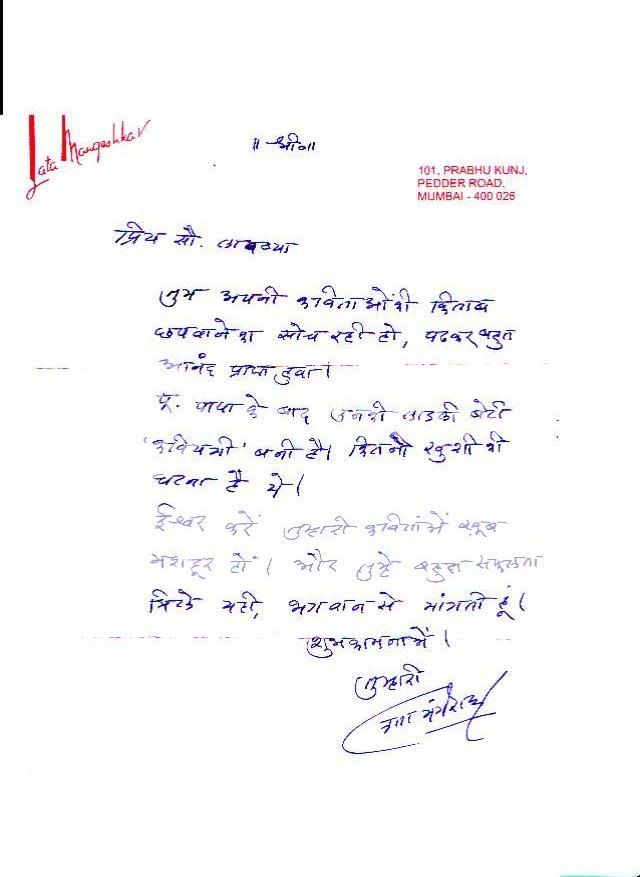 Lata Mangeshkar
॥ श्री ॥
101, PRABHU KUNJ,
PEDDER ROAD,
MUMBAI - 400 026
प्रिय सौ. लावण्या
तुम अपनी कविताओंकी किताब
छपवानेका सोच रही हो, पढकर बहुत
आनंद प्राप्त हुवा।
पू. पापा के बाद उनकी लाडली बेटी
'कवियत्री' बनी है। कितनी खुशी की
घटना है ये।
ईश्वर करें तुम्हारी कवितायें खूब
मशहूर हों। और तुम्हे बहुत सफलता
मिले यही, भगवान से मांगती हूं।
शुभकामनायें।
तुम्हारी
लता मंगेशकर